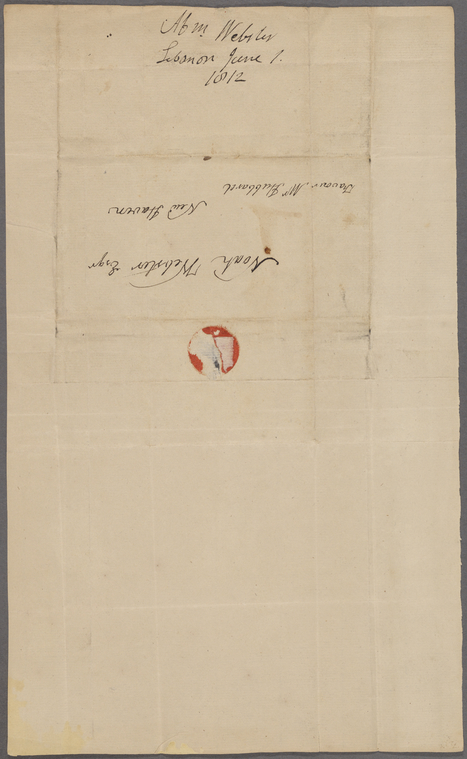 Abm Webster
Lebanon June 1.
1812
Noah Webster Esqr
New Haven
Favour Mr Hubbard